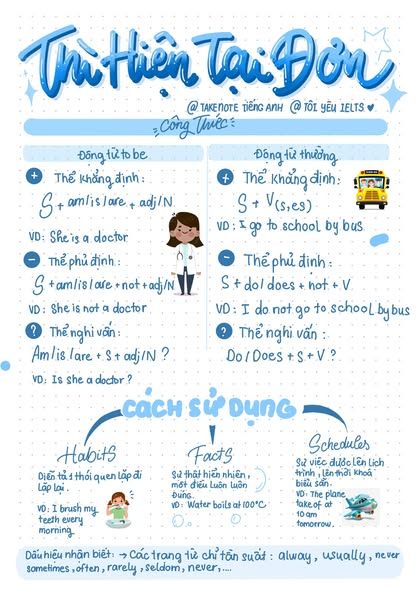 Thì Hiện Tại Đơn
@ TAKENOTE TIẾNG ANH @ TÔI YÊU IELTS
Công Thức
Động từ to be
+ Thể khẳng định:
S + am/is/are + adj/N
VD: She is a doctor
- Thể phủ định:
S + am/is/are + not + adj/N
VD: She is not a doctor
? Thể nghi vấn:
Am/is/are + S + adj/N ?
VD: Is she a doctor?
Động từ thường
+ Thể khẳng định:
S + V(s,es)
VD: I go to school by bus
- Thể phủ định:
S + do/does + not + V
VD: I do not go to school by bus
? Thể nghi vấn:
Do/Does + S + V ?
CÁCH SỬ DỤNG
Habits
Diễn tả 1 thói quen lặp đi
lặp lại.
VD: I brush my
teeth every
morning.
Facts
Sự thật hiển nhiên,
một điều luôn luôn
đúng.
VD: Water boils at 100°C
Schedules
Sự việc được lên lịch
trình, lên thời khoá
biểu sẵn.
VD: The plane
take of at
10 am
tomorrow.
Dấu hiệu nhận biết: → Các trạng từ chỉ tần suất: alway, usually, never
sometimes, often, rarely, seldom, never,....